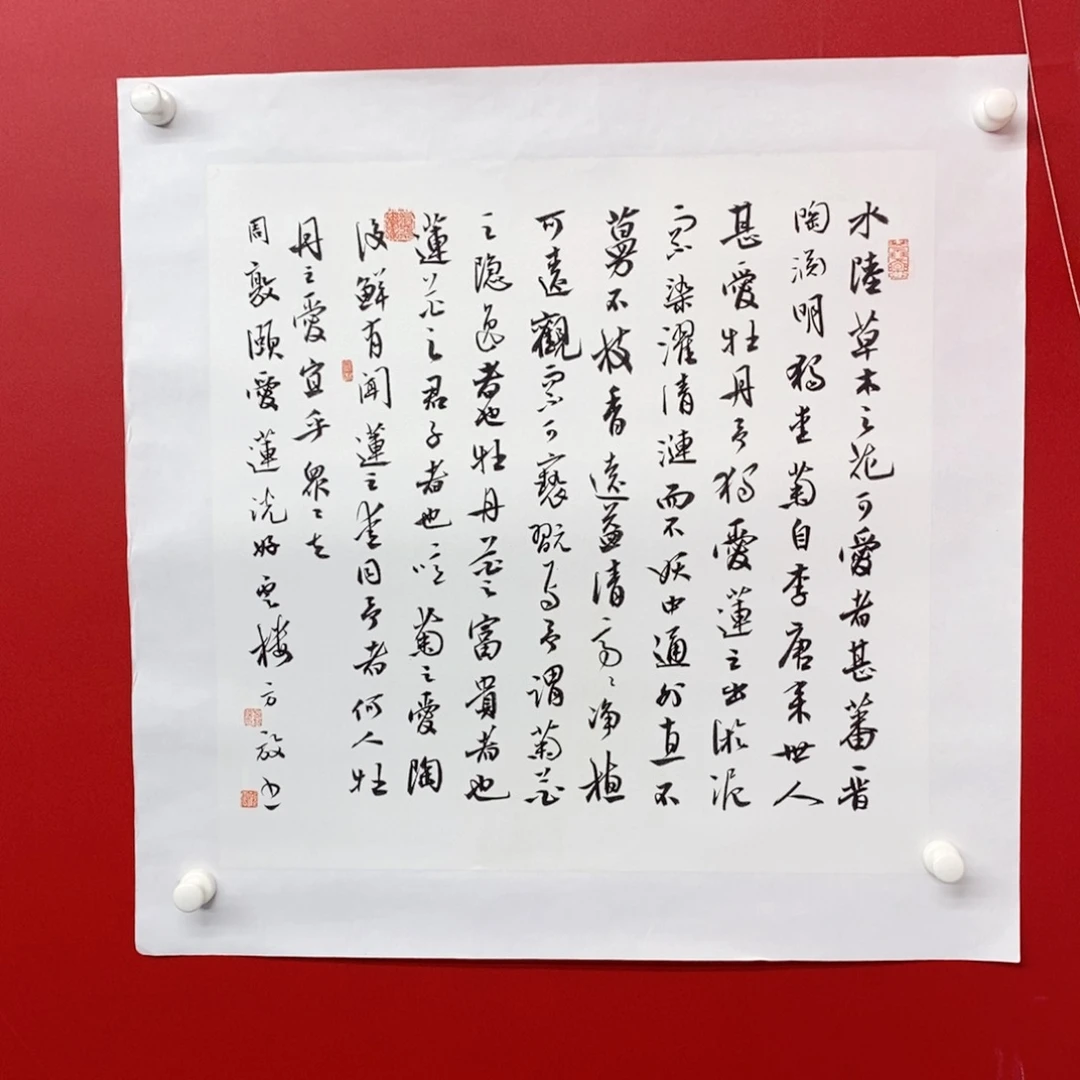 水陸草木之花可愛者甚蕃晋
陶渊明獨愛菊自李唐来世人
甚愛牡丹予獨愛蓮之出淤泥
而不染濯清漣而不妖中通外直不
蔓不枝香遠益清亭〻净植
可遠觀而不可褻翫焉予謂菊花
之隐逸者也牡丹花之富貴者也
蓮花之君子者也噫菊之愛陶
後鮮有闻蓮之愛同予者何人牡
丹之愛宜乎衆矣
周敦頤愛蓮说好雲楼方放书